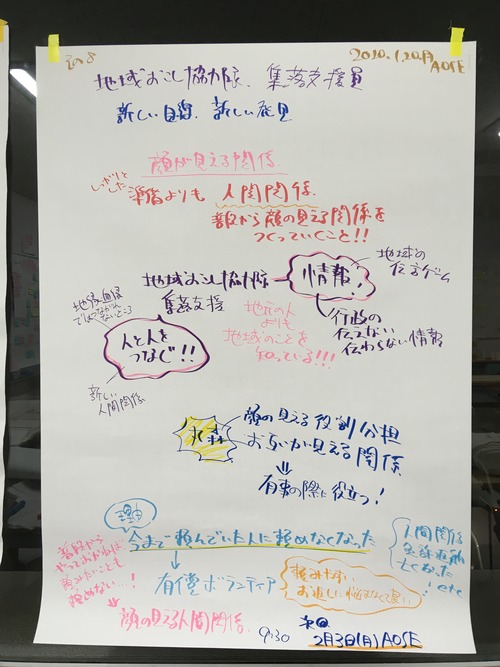 2020.1.20.月
AOSE
地域おこし協力隊、集落支援員
新しい目線、新しい発見
顔が見える関係
しっかりとした
準備よりも 人間関係
普段から顔の見える関係を
つくっていくこと!!
地域おこし協力隊
集落支援
情報!
地域の
伝言ゲーム
行政の
伝えない
伝わらない情報
地元の人
よりも
地域のことを
知っている!!!
地縁血縁
ではつながれ
ないところ
人と人を
つなぐ!!
新しい
人間関係
顔の見える役割分担
お互いが見える関係
有事の際に役立つ!
理由
今まで頼んでいた人に頼めなくなった
人間関係
亡くなった
etc
普段から
やっておかねば
頼みたいことも
頼めない…!
有償ボランティア
頼みやすい
お返しに悩まなくて良い
顔の見える人間関係
9:30
次回
2月3日(月)AOSE